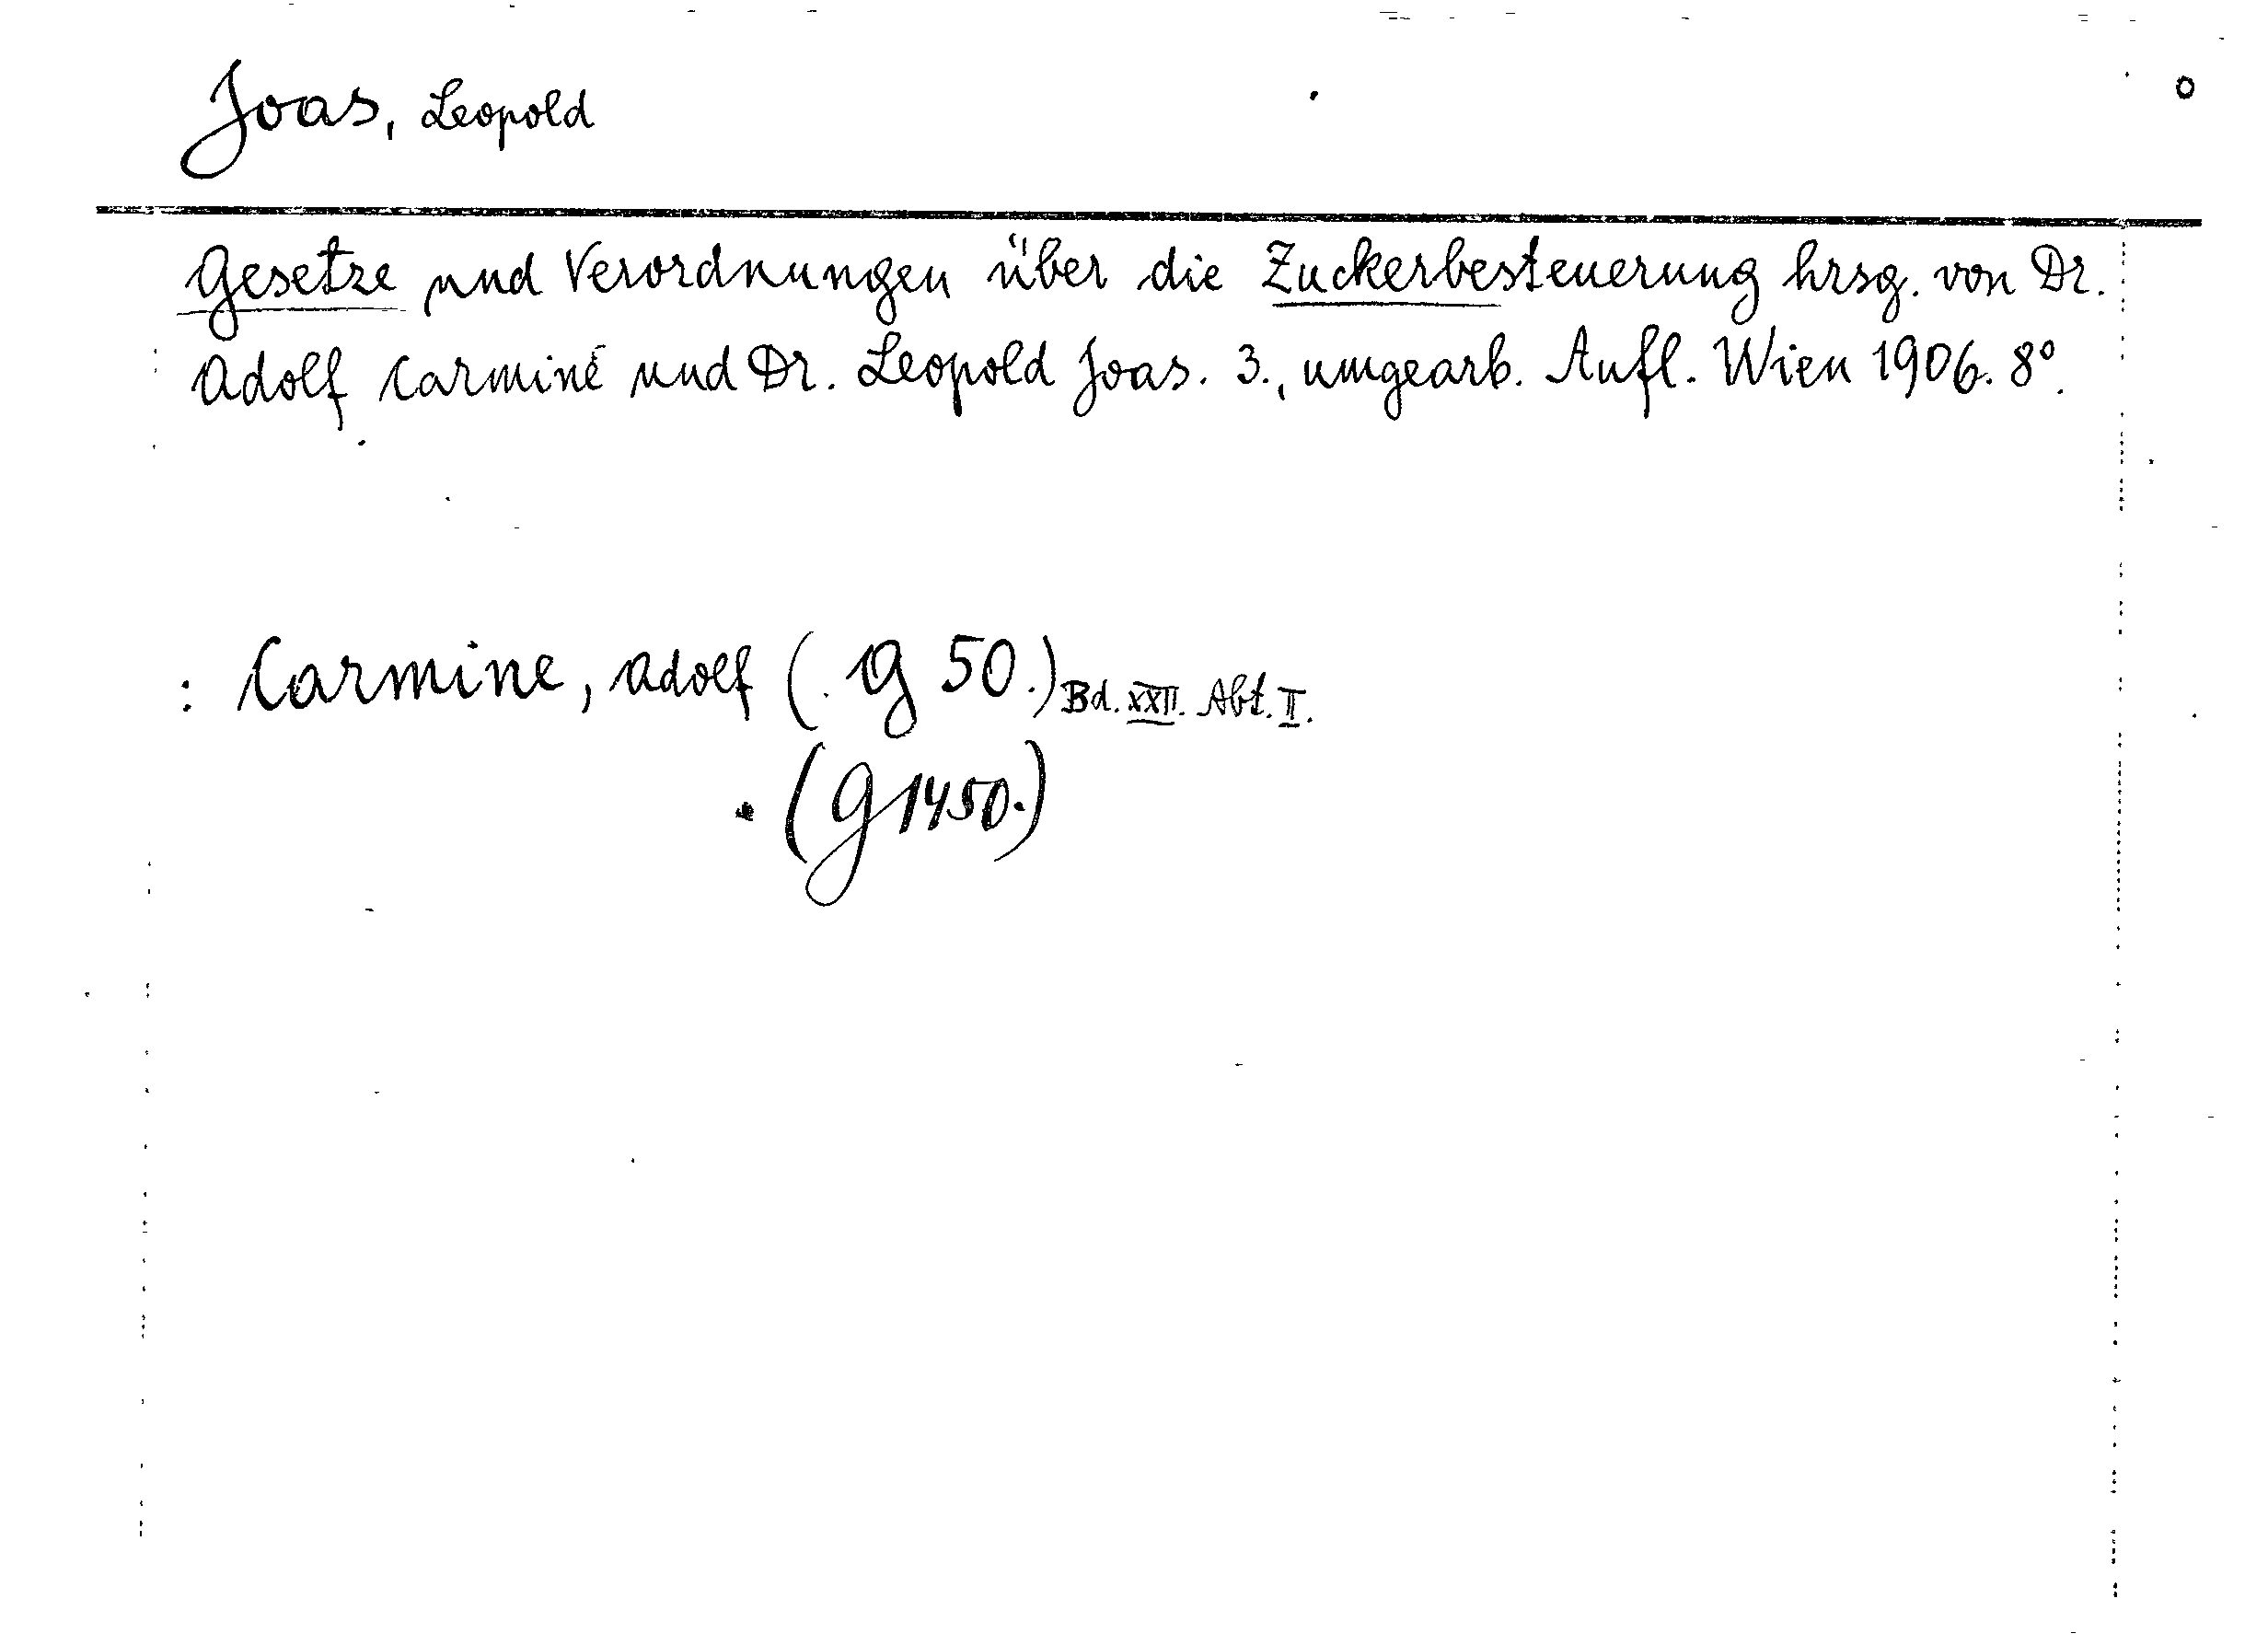 Joas, Leopold
o
Gesetze und Verordnungen über die Zuckerbesteuerung hrsg. von Dr.
Adolf Carminé und Dr. Leopold Joas. 3., umgearb. Aufl. Wien 1906. 8°.
: Carmine, Adolf (. G 50.) Bd. XXII. Abt. II.
(G 1450.)